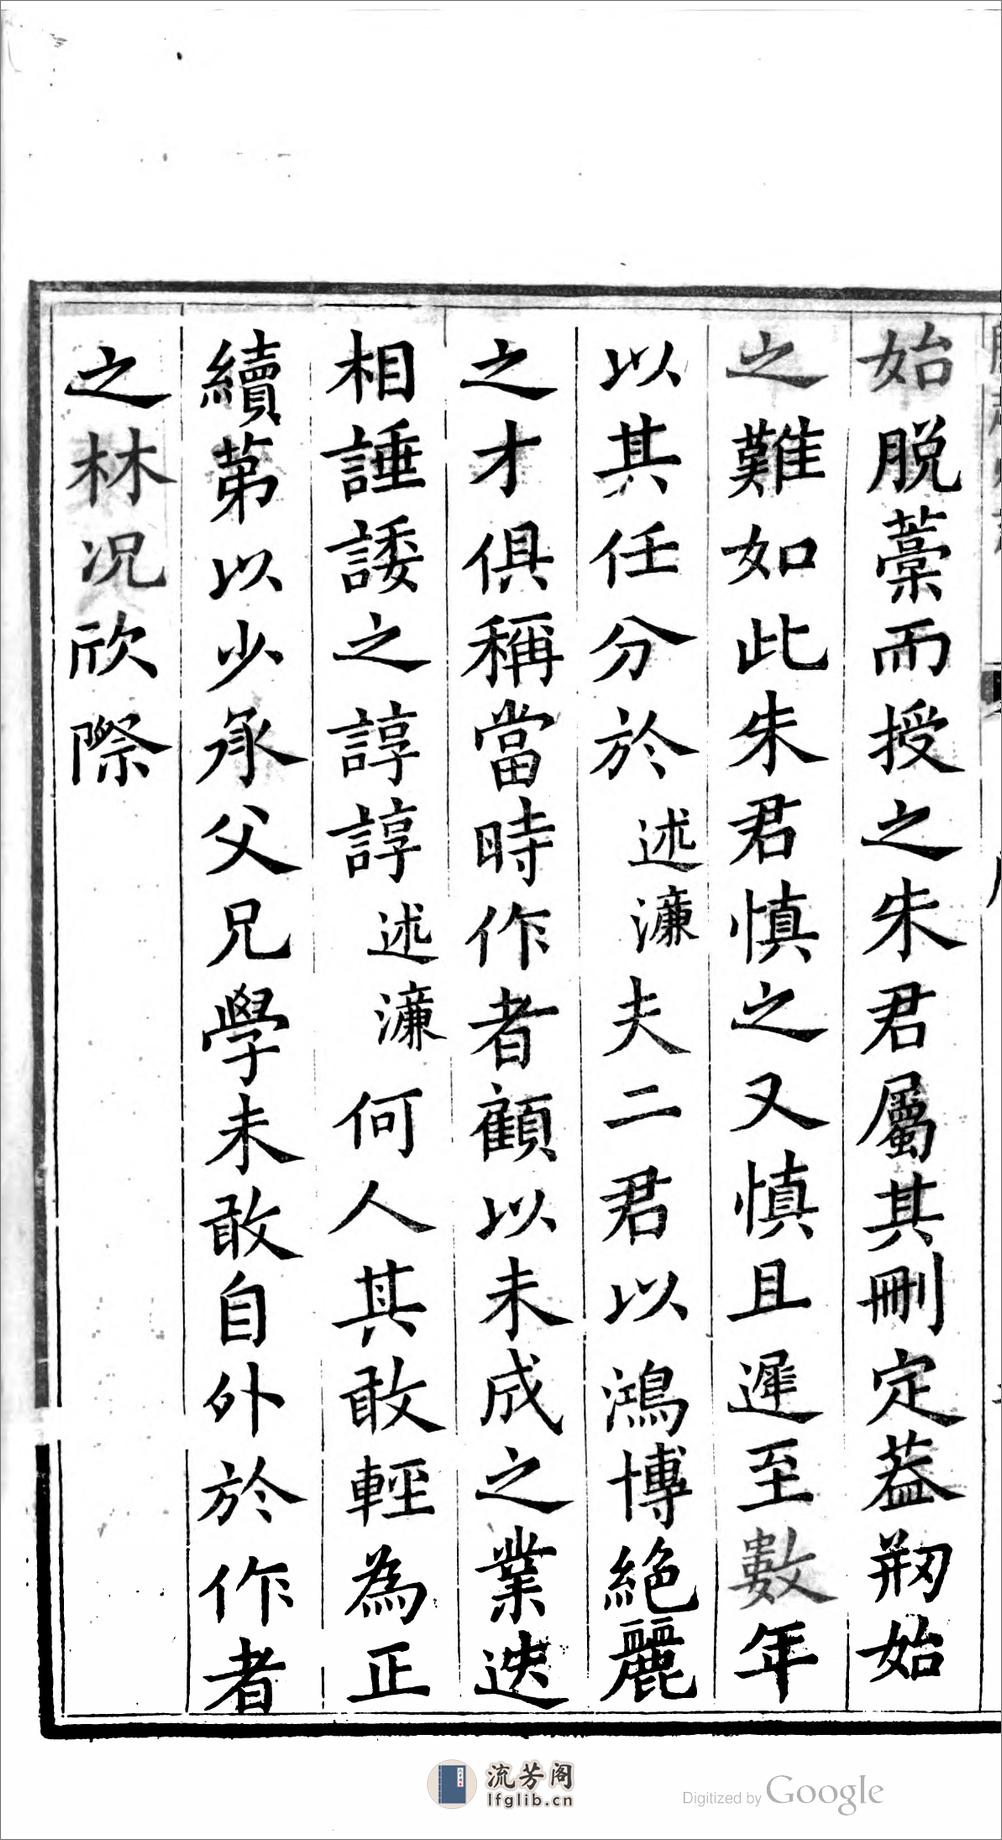 始脱藁而授之朱君屬其刪定葢刱始
之難如此朱君慎之又慎且遲至數年
以其任分於述濂夫二君以鴻博絶麗
之才俱稱當時作者顧以未成之業迭
相諈諉之諄諄述濂何人其敢輕為正
續第以少承父兄學未敢自外於作者
之林况欣際
流芳阁
lfglib.cn
Digitized by Google